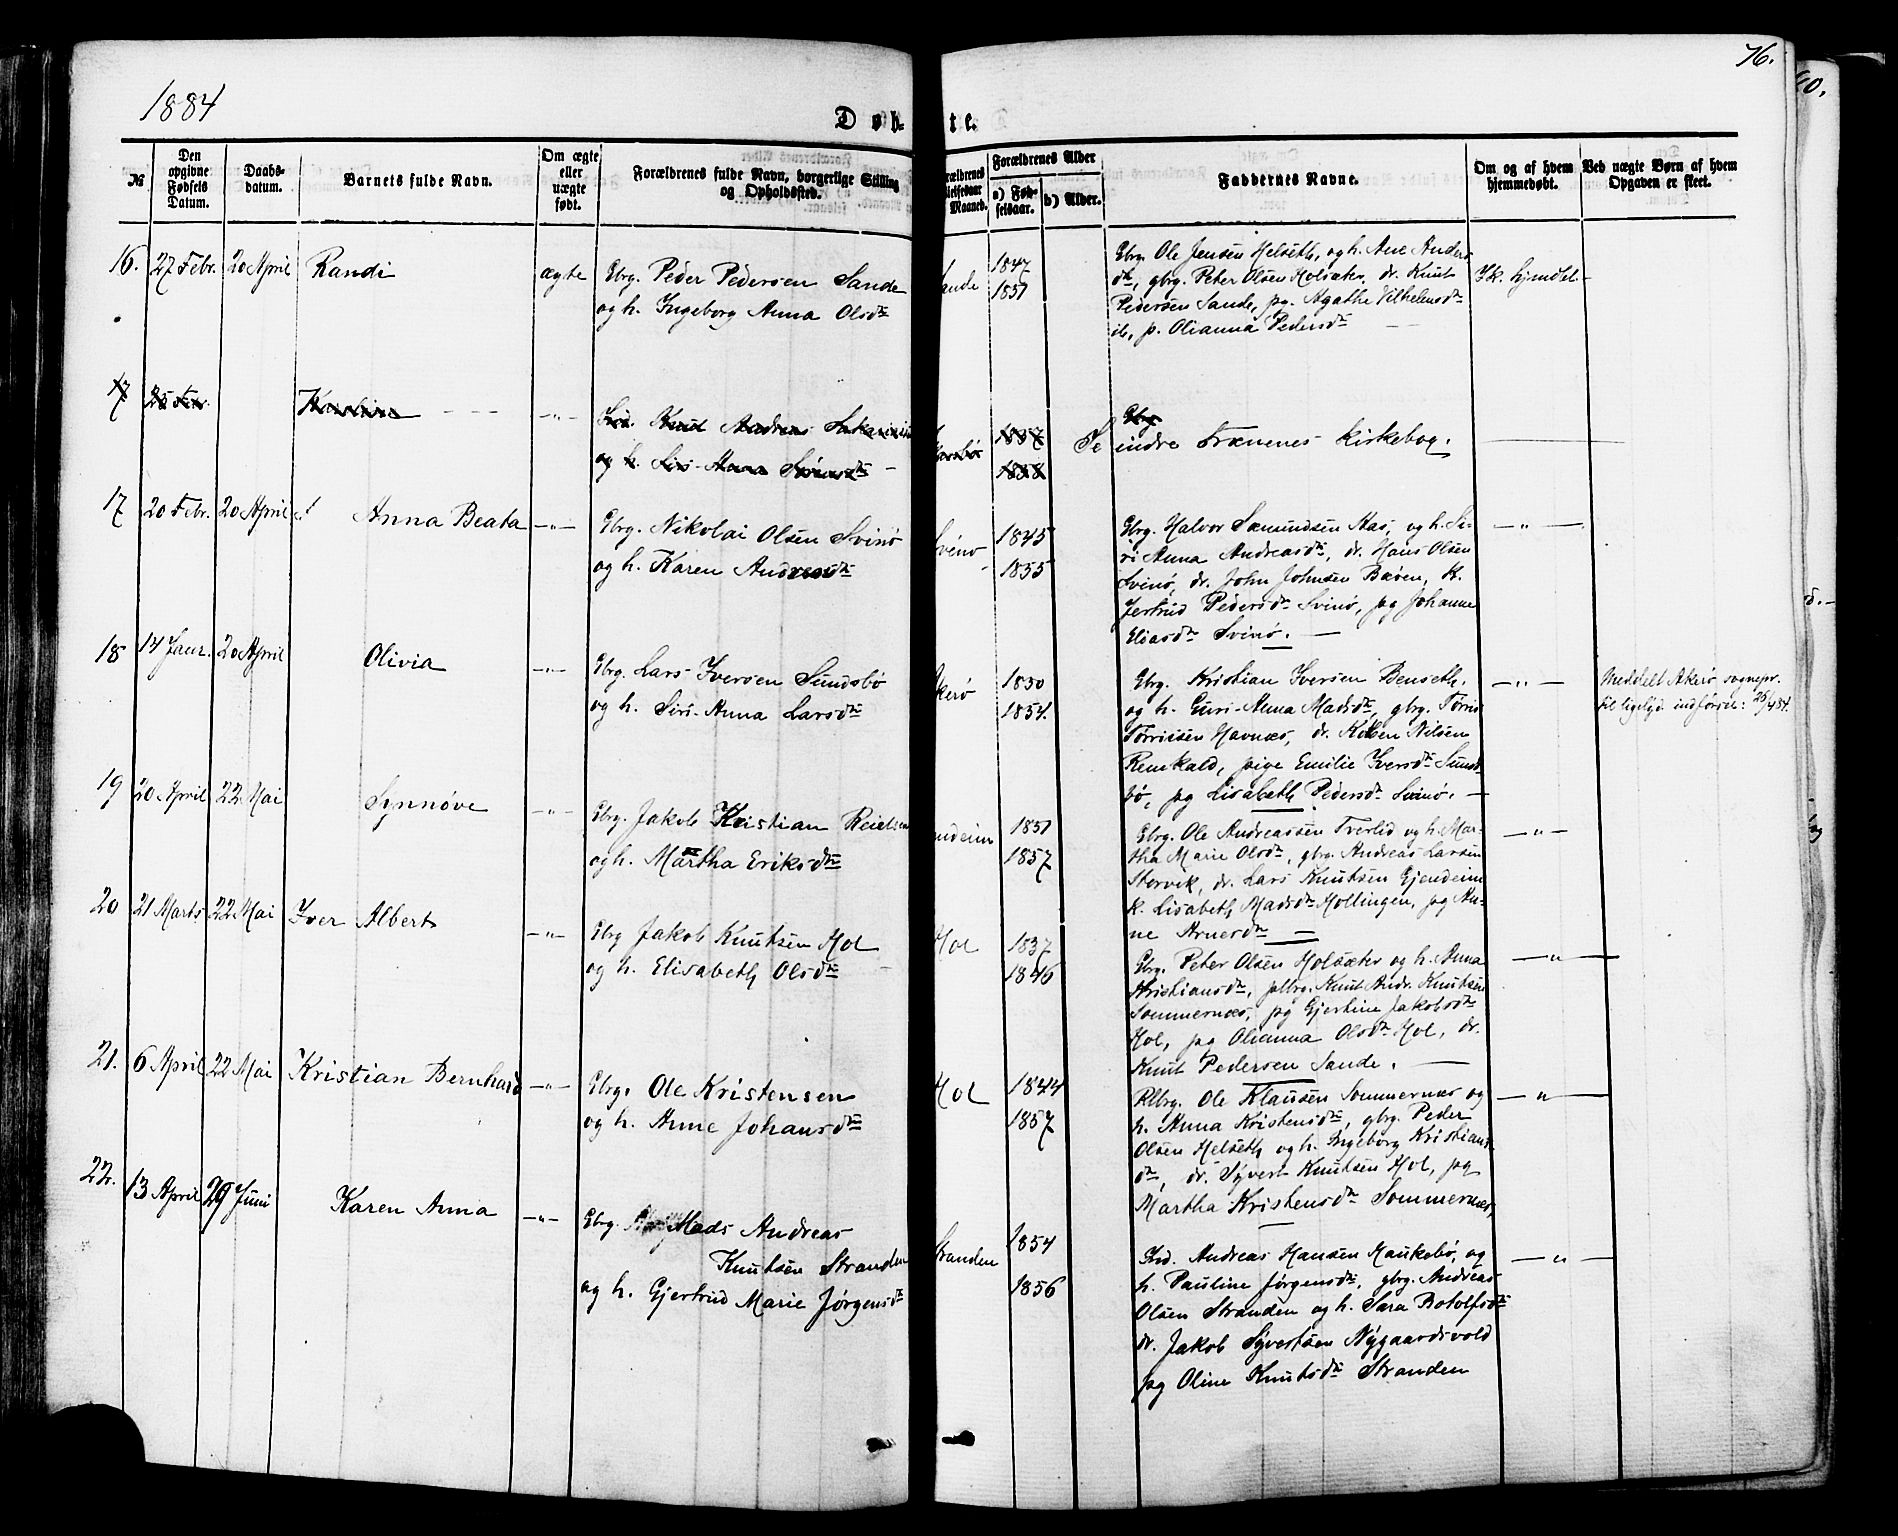 76.
1884
Døbte.
№
Den opgivne Fødsels Datum.
Daabs-datum.
Barnets fulde Navn.
Om ægte eller uægte født.
Forældrenes fulde Navn, borgerlige Stilling og Opholdssted.
Forældrenes Alder
a) Fødselsaar.
b) Alder.
Faddernes Navne.
Om og af hvem hjemmedøbt.
Ved uægte Børn af hvem Opgaven er skeet.
16. 27 Febr. 20 April Randi ægte Gbrg. Peder Pedersen Sande
og h. Ingeborg Anna Olsdtr
Sande 1847
1851
Gbrg. Ole Jensen Helseth, og h. Ane Anders
dtr, gbrg. Peter Olsen Holsæter, dr. Knut
Pedersen Sande, pg. Agathe Vilhelmsdtr
ib, p. Olianna Pedersdtr
Ik. hjmdbt.
17 25 Febr.
Knut Andreas
og h. Siri-Anna
1837
1838
Gbrg
Se indre Frænenes Kirkebog.
17 20 Febr. 20 April Anna Beata —"— Gbrg. Nikolai Olsen Svinø
og h. Karen Andreasdtr
Svinø 1845
1855
Gbrg. Halvor Sæmundsen Aas, og h. Si-
ri Anna Andreasdtr, dr. Hans Olsen
Svinø, dr. John Johnsen Bøven, K.
Jertrud Pedersdtr Svinø, pg Johanne
Eliasdtr Svinø. —
—"—
18 14 Janr. 20 April Olivia —"— Gbrg. Lars Iversen Sundsbø
og h. Siri-Anna Larsdtr
Akerø 1850
1854.
Gbrg. Kristian Iversen Benseth,
og h. Guri-Anna Madsdtr, gbrg. Tørris
Tørrissen Havnæs, dr. Nilsen
Renskald, pige Emilie Iversdtr Sunds
bø, pg Lisabeth Pedersdtr Svinø. —
—"—
Meddelt Akerø sognepr.
til ligelyd. indførsel: 26/4 84.
19 20 April 22 Mai Synnøve —"— Gbrg. Jakob Kristian Reielsen
og h. Martha Eriksdtr
1851
1857
Gbrg. Ole Andreassen Tverlid og h. Mar-
tha Marie Olsdtr, gbrg. Andreas Larsen
Storvik, dr. Lars Knutsen Gjendeim
K. Lisabeth Madsdtr Mollingen, pg An-
ne Arnesdtr —
—"—
20 21 Marts 22 Mai Iver Albert —"— Gbrg Jakob Knutsen Hol
og h. Elisabeth Olsdtr
Hol 1837
1846
Gbrg. Peter Olsen Holsæter og h. Anna
Kristiansdtr, plbrg. Knut Andr. Knutsen
Sommernæs, pg Gjertine Jakobsdtr
Hol, pg Olianna Olsdtr Hol, dr.
Knut Pedersen Sande. —
—"—
21. 6 April 22 Mai Kristian Bernhard —"— Gbrg. Ole Kristensen
og h. Anne Johansdtr
Hol 1844
1857
Plbrg. Ole Klausen Sommernæs og
h. Anna Kristensdtr, gbrg. Peder
Olsen Helseth og h. Ingeborg Kristians
dtr, dr. Syvert Knutsen Hol, pg
Martha Kristensdtr Sommernæs,
—"—
22. 13 April 29 Juni Karen Anna —"— Gbrg. Mads Andreas
Knutsen Stranden
og h. Gjertrud Marie Jørgensdtr
Stranden 1854
1856
Ind. Andreas Hansen Haukebø, og
h. Pauline Jørgensdtr, gbrg. Andreas
Olsen Stranden og h. Sara Botolfsdtr
dr. Jakob Syvertsen Nygaardsvold
pg Oline Knutsdtr Stranden
—"—